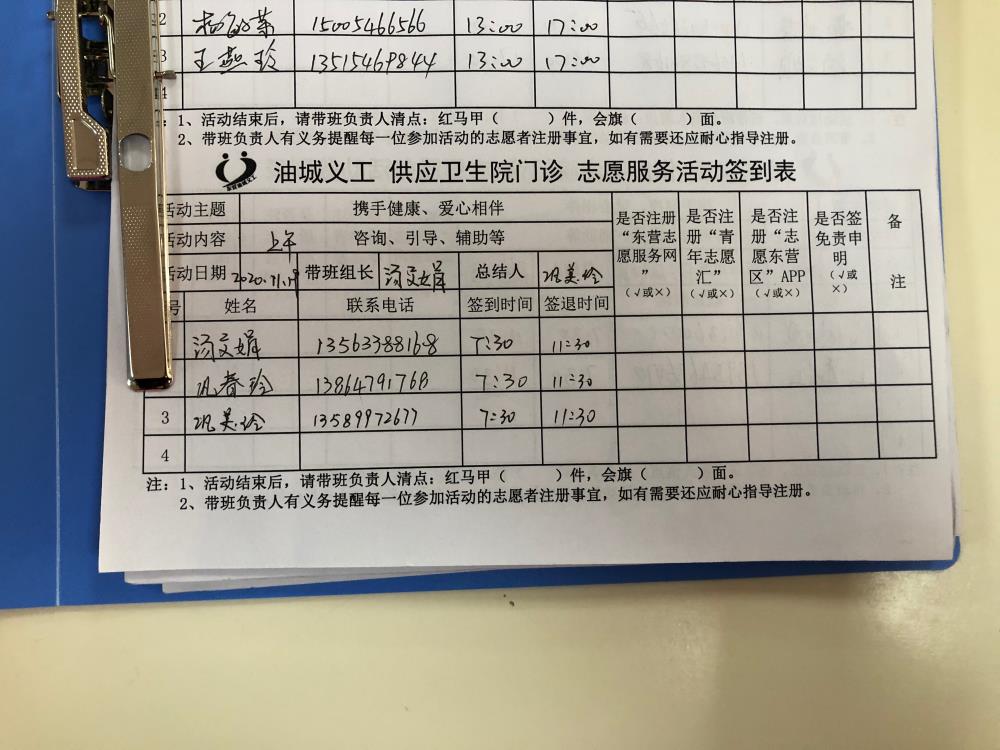 2 15005466566 13:00 17:00
3 王燕玲 13515469844 13:00 17:00
14
：1、活动结束后，请带班负责人清点：红马甲（ ）件，会旗（ ）面。
2、带班负责人有义务提醒每一位参加活动的志愿者注册事宜，如有需要还应耐心指导注册。
油城义工 供应卫生院门诊 志愿服务活动签到表
活动主题 携手健康、爱心相伴 是否注册“东营志愿服务网”（√或×） 是否注册“青年志愿汇”（√或×） 是否注册“志愿东营区”APP（√或×） 是否签免责申明（√或×） 备注
活动内容 上午 咨询、引导、辅助等
活动日期 2020.11.19 带班组长 汤文娟 总结人 巩美玲
号 姓名 联系电话 签到时间 签退时间
汤文娟 13563388168 7:30 11:30
巩春玲 13864791768 7:30 11:30
3 巩美玲 13589972677 7:30 11:30
4
注：1、活动结束后，请带班负责人清点：红马甲（ ）件，会旗（ ）面。
2、带班负责人有义务提醒每一位参加活动的志愿者注册事宜，如有需要还应耐心指导注册。